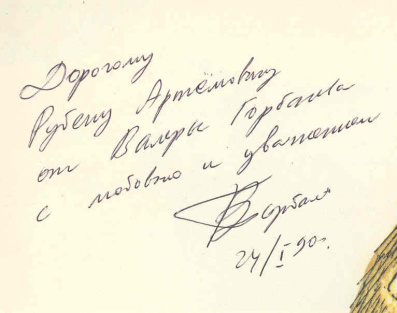 Дорогому
Рубену Артёмовичу
от Валеры Горбачёва
с любовью и уважением
24/I 90г.